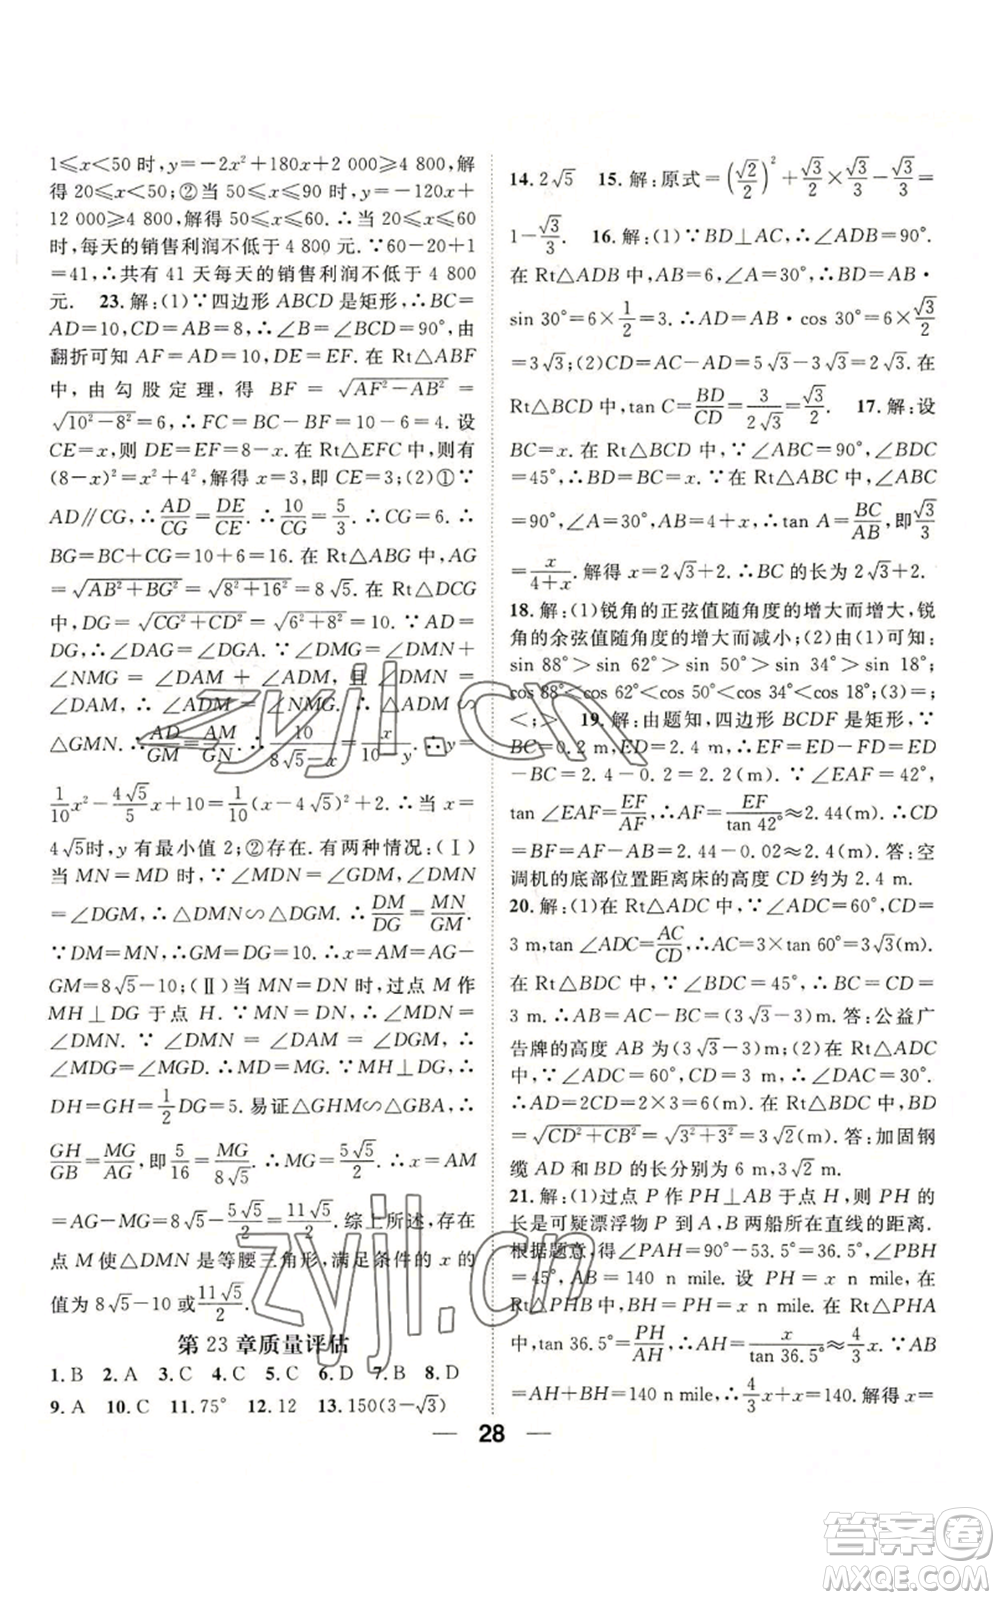 1≤x<50 时,y=-2x²+180x+2 000≥4 800,解
得 20≤x<50;②当 50≤x≤90 时,y=-120x+
12 000≥4 800,解得 50≤x≤60.∴当 20≤x≤60
时,每天的销售利润不低于 4 800 元.∵60-20+1
=41,∴共有 41 天每天的销售利润不低于 4 800
元. 23.解:(1)∵四边形 ABCD 是矩形,∴BC=
AD=10,CD=AB=8,∴∠B=∠BCD=90°,由
翻折可知 AF=AD=10,DE=EF. 在 Rt△ABF
中,由勾股定理,得 BF=√(AF²-AB²)=
√(10²-8²)=6,∴FC=BC-BF=10-6=4. 设
CE=x,则 DE=EF=8-x. 在 Rt△EFC 中,则有
(8-x)²=x²+4²,解得 x=3,即 CE=3;(2)①∵
AD∥CG,∴AD/CG=DE/CE.∴10/CG=5/3.∴CG=6.∴
BG=BC+CG=10+6=16. 在 Rt△ABG 中,AG
=√(AB²+BG²)=√(8²+16²)=8√5. 在 Rt△DCG
中,DG=√(CG²+CD²)=√(6²+8²)=10.∵AD=
DG,∴∠DAG=∠DGA.∵∠DMG=∠DMN+
∠NMG=∠DAM+∠ADM,且∠DMN=
∠DAM,∴∠NMG=∠ADM.∴△ADM∽
△GMN.∴AD/GM=AM/GN.∴10/(8√5-x)=x/(10-y).∴y=
1/10x²-4√5/5x+10=1/10(x-4√5)²+2.∴当 x=
4√5时,y 有最小值 2;②存在. 有两种情况:(Ⅰ)
当 MN=MD 时,∵∠MDN=∠GDM,∠DMN
=∠DGM,∴△DMN∽△DGM.∴DM/DG=MN/GM.
∵DM=MN,∴GM=DG=10.∴x=AM=AG-
GM=8√5-10;(Ⅱ)当 MN=DN 时,过点 M 作
MH⊥DG 于点 H.∵MN=DN,∴∠MDN=
∠DMN.∵∠DMN=∠DAM=∠DGM,∴
∠MDG=∠MGD.∴MD=MG.∵MH⊥DG,∴
DH=GH=1/2DG=5. 易证△GHM∽△GBA,∴
GH/GB=MG/AG,即5/16=MG/8√5.∴MG=5√5/2.∴x=AM
=AG-MG=8√5-5√5/2=11√5/2. 综上所述,存在
点 M 使△DMN 是等腰三角形,满足条件的 x 的
值为 8√5-10 或11√5/2.
第 23 章质量评估
1.B 2.A 3.C 4.C 5.C 6.D 7.B 8.D
9.A 10.C 11.75° 12.12 13.150(3-√3)
14.2√5 15.解:原式=(√2/2)²+√3/2×√3/3-√3/3=
1-√3/3. 16.解:(1)∵BD⊥AC,∴∠ADB=90°.
在 Rt△ADB 中,AB=6,∠A=30°,∴BD=AB·
sin 30°=6×1/2=3.∴AD=AB·cos 30°=6×√3/2
=3√3;(2)CD=AC-AD=5√3-3√3=2√3. 在
Rt△BCD 中,tan C=BD/CD=3/2√3=√3/2. 17.解:设
BC=x. 在 Rt△BCD 中,∵∠ABC=90°,∠BDC
=45°,∴BD=BC=x. 在 Rt△ABC 中,∠ABC
=90°,∠A=30°,AB=4+x,∴tan A=BC/AB,即√3/3
=x/(4+x). 解得 x=2√3+2.∴BC 的长为 2√3+2.
18.解:(1)锐角的正弦值随角度的增大而增大,锐
角的余弦值随角度的增大而减小;(2)由(1)可知:
sin 88°>sin 62°>sin 50°>sin 34°>sin 18°;
cos 88°<cos 62°<cos 50°<cos 34°<cos 18°;(3)=;
<;> 19.解:由题知,四边形 BCDF 是矩形,∵
BC=0.2 m,ED=2.4 m,∴EF=ED-FD=ED
-BC=2.4-0.2=2.2(m).∵∠EAF=42°,
tan∠EAF=EF/AF,∴AF=EF/tan 42°≈2.44(m).∴CD
=BF=AF-AB=2.44-0.02≈2.4(m). 答:空
调机的底部位置距离床的高度 CD 约为 2.4 m.
20.解:(1)在 Rt△ADC 中,∵∠ADC=60°,CD=
3 m,tan∠ADC=AC/CD,∴AC=3×tan 60°=3√3(m).
在 Rt△BDC 中,∵∠BDC=45°,∴BC=CD=
3 m.∴AB=AC-BC=(3√3-3)(m). 答:公益广
告牌的高度 AB 为(3√3-3)m;(2)在 Rt△ADC
中,∵∠ADC=60°,CD=3 m,∴∠DAC=30°.
∴AD=2CD=2×3=6(m). 在 Rt△BDC 中,BD
=√(CD²+CB²)=√(3²+3²)=3√2(m). 答:加固钢
缆 AD 和 BD 的长分别为 6 m,3√2 m.
21.解:(1)过点 P 作 PH⊥AB 于点 H,则 PH 的
长是可疑漂浮物 P 到 A,B 两船所在直线的距离.
根据题意,得∠PAH=90°-53.5°=36.5°,∠PBH
=45°,AB=140 n mile. 设 PH=x n mile,在
Rt△PHB 中,BH=PH=x n mile. 在 Rt△PHA
中,tan 36.5°=PH/AH,∴AH=x/tan 36.5°≈4/3x.∵AB
=AH+BH=140 n mile,∴4/3x+x=140. 解得 x=
28
zyjl.cn
zyjl.cn
答案圈
MXQE.COM